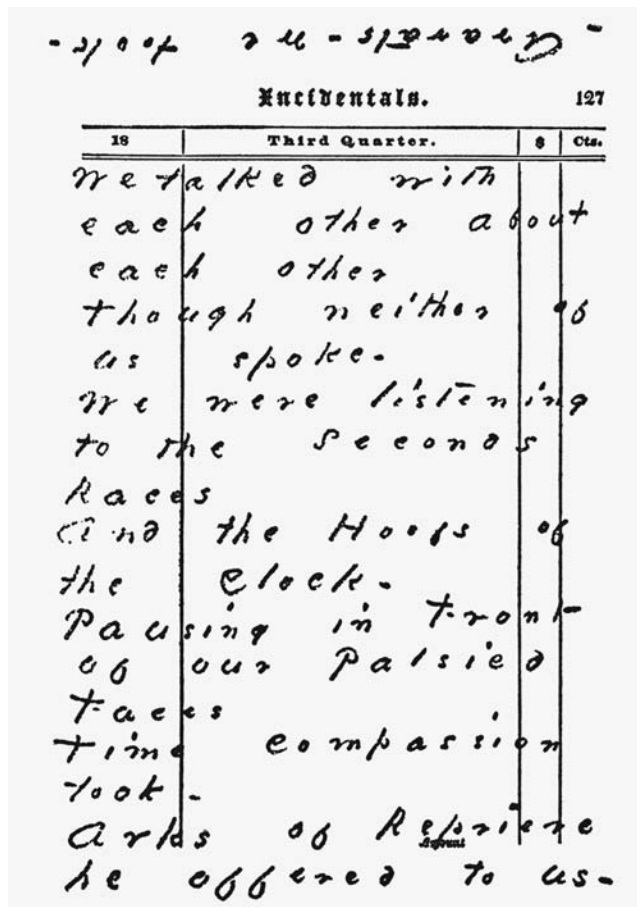 Incidentals. 127
18 Third Quarter. $ Cts.
We talked with
each other about
each other
though neither of
us spoke -
We were listening
to the Seconds
Races
And the Hoofs of
the Clock -
Pausing in Front
of our Palsied
Faces
Time compassion
took -
Arks of Reprieve
Amount
he offered to us -
Ararats - we took -